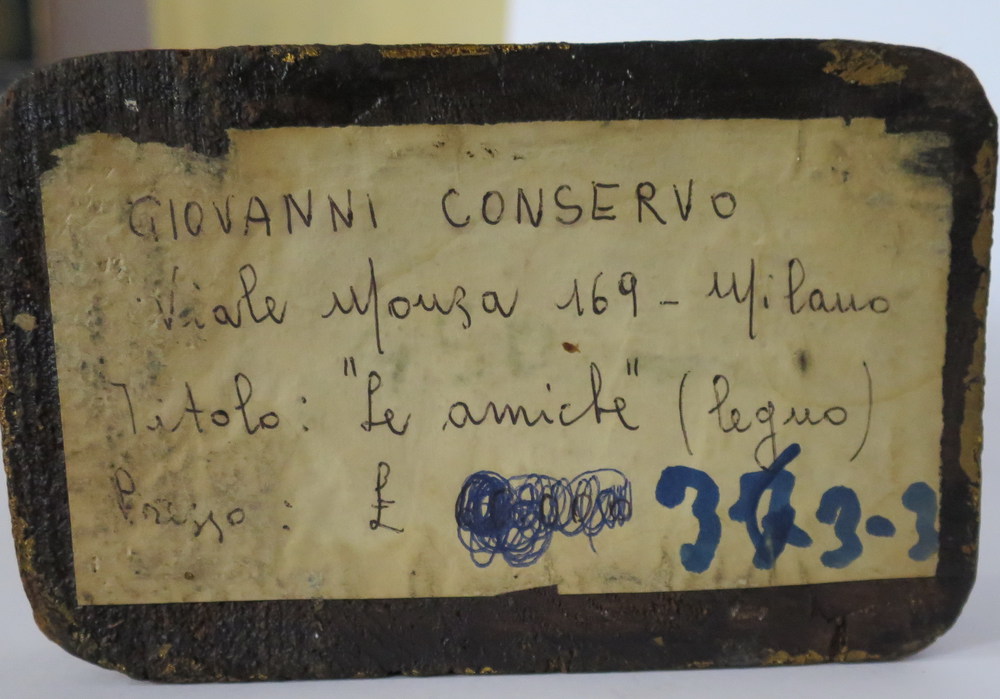 GIOVANNI CONSERVO
Viale Monza 169 - Milano
Titolo: "Le amiche" (legno)
Prezzo: £